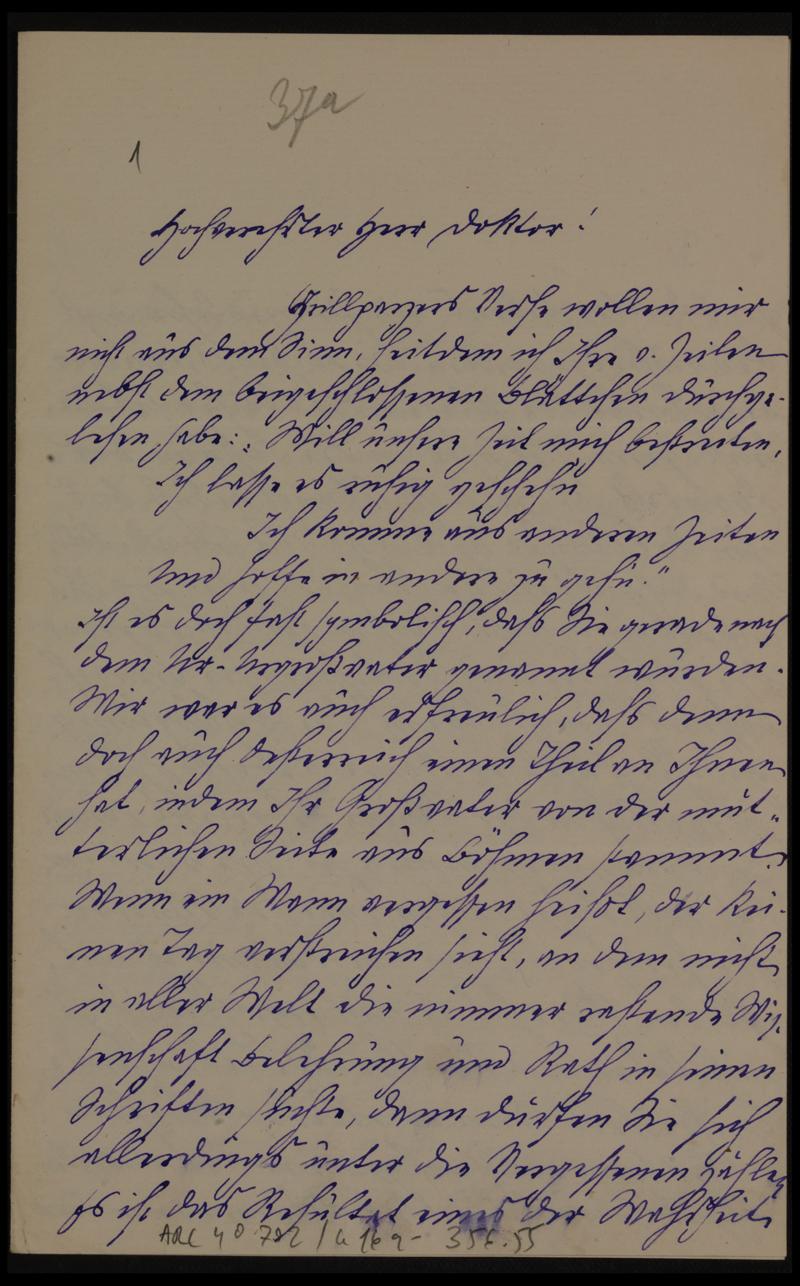 37a
1
Hochverehrter Herr Doktor!
Grillparzers Verse wollen mir
nicht aus dem Sinn, seitdem ich Ihre v. Zeilen
nebst dem beigeschlossenen Blättchen durchge-
lesen habe: „Will unsere Zeit mich bestreiten,
Ich lasse es ruhig geschehn
Ich komme aus anderen Zeiten
Und hoffe in andere zu gehn."
Ist es doch fast symbolisch, dass Sie gerade nach
dem Ur-Urgroßvater genannt wurden.
Mir war es auch erfreulich, dass denn
doch auch Oesterreich einen Theil an Ihnen
hat, indem Ihr Großvater von der müt-
terlichen Seite aus Böhmen stammt.
Wenn ein Mann vergessen heißt, der kei-
nen Tag verstreichen sieht, an dem nicht
in aller Welt die nimmer rastende Wis-
senschaft Belehrung und Rath in seinen
Schriften suchte, dann dürfen Sie sich
allerdings unter die Vergessenen zählen
Es ist das Resultat eines der Wahrheit
ARC 4° 792 / a 169- 356.55